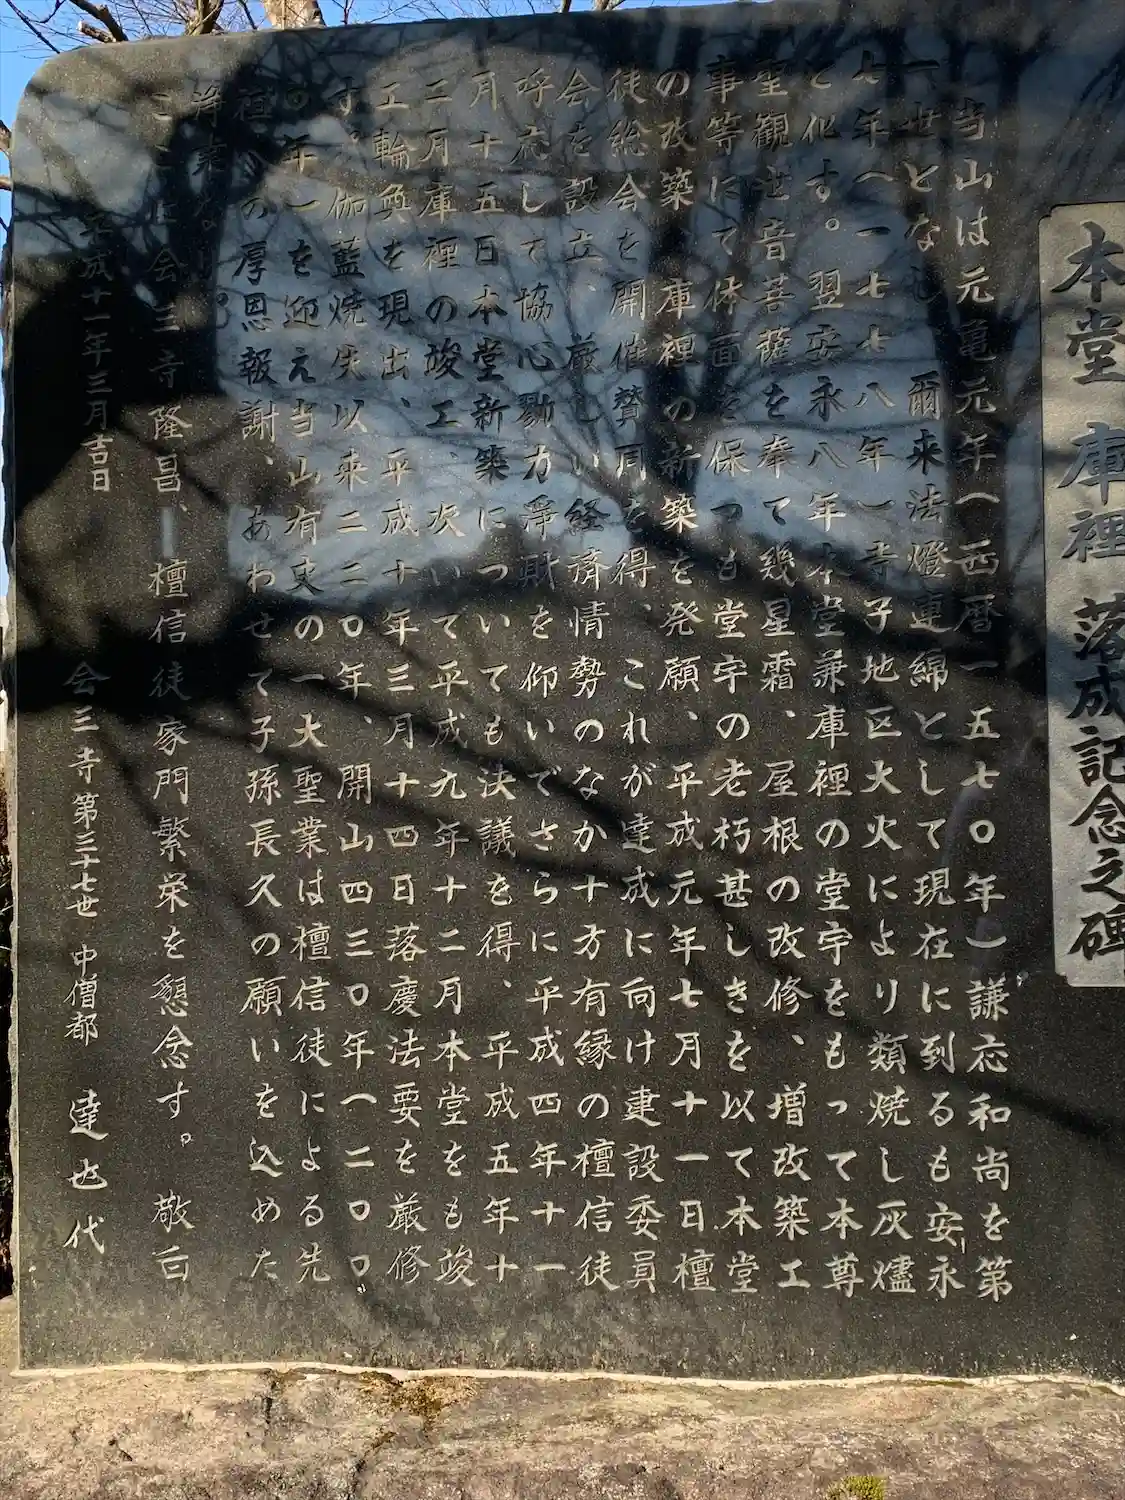 本堂 庫裡 落成記念之碑
当山は元亀元年(西暦一五七〇年)謙応和尚を第
一世となし、爾来法燈連綿として現在に到るも安永
七年(一七七八年)寺子地区大火により類焼し灰燼
と化す。翌安永八年本堂兼庫裡の堂宇をもって本尊
聖観世音菩薩を奉て幾星霜、屋根の改修、増改築工
事等にて体面を保つも堂宇の老朽甚しきを以て本堂
の改築、庫裡の新築を発願、平成元年七月十一日檀
徒総会を開催賛同を得、これが達成に向け建設委員
会を設立、厳しい経済情勢のなか十方有縁の檀信徒
呼応して協心勠力浄財を仰いでさらに平成四年十一
月十五日本堂新築についても決議を得、平成五年十
二月庫裡の竣工、次いで平成九年十二月本堂をも竣
工輪奐を現出、平成十年三月十四日落慶法要を厳修
す。伽藍焼失以来二二〇年、開山四三〇年(二〇〇
〇年)を迎え当山有史の一大聖業は檀信徒による先
祖への厚恩報謝、あわせて子孫長久の願いを込めた
浄業なり。
ここに会三寺隆昌、檀信徒家門繁栄を懇念す。 敬白
平成十一年三月吉日 会三寺第三十七世 中僧都 達也 代